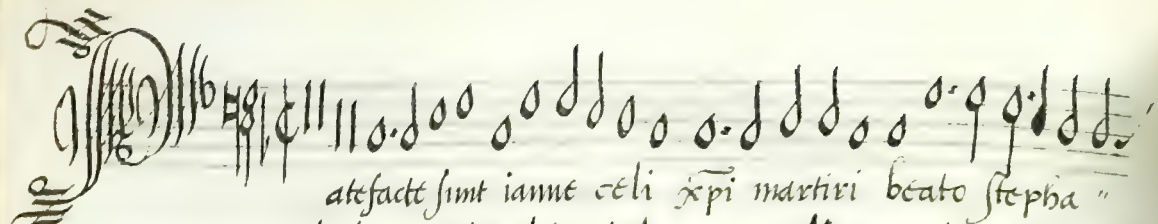 Patefacte sunt ianue celi xp̄i martiri beato stepha